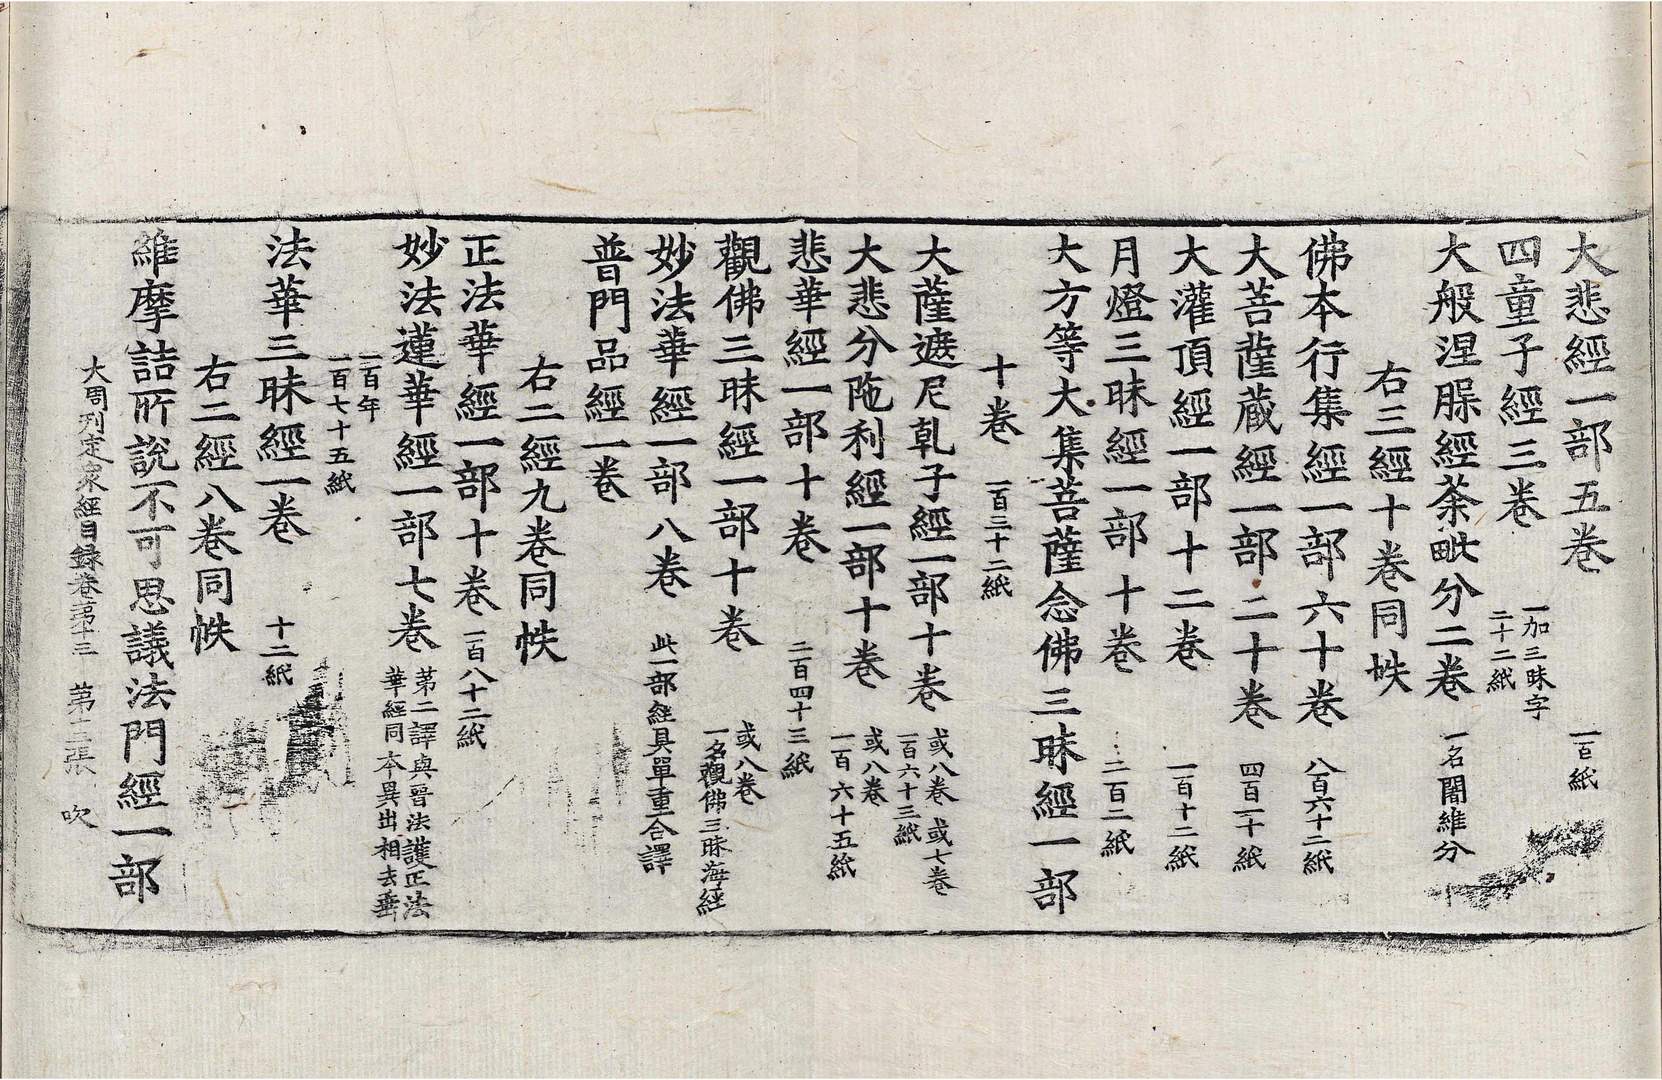 大悲經一部五卷 一百紙
四童子經三卷 一加三昧字 二十二紙
大般涅槃經荼毗分二卷 一名闍維分
右三經十卷同帙
佛本行集經一部六十卷 八百六十二紙
大菩薩藏經一部二十卷 四百一十紙
大灌頂經一部十二卷 一百十二紙
月燈三昧經一部十卷 二百二紙
大方等大集菩薩念佛三昧經一部
十卷 一百三十二紙
大薩遮尼乹子經一部十卷 或八卷或七卷 一百六十三紙
大悲分陁利經一部十卷 或八卷 一百六十五紙
悲華經一部十卷 二百四十三紙
觀佛三昧經一部十卷 或八卷 一名觀佛三昧海經
妙法華經一部八卷 此一部經具單重合譯
普門品經一卷
右二經九卷同帙
正法華經一部十卷 一百八十二紙
妙法蓮華經一部七卷 第二譯與晉法護正法 華經同本異出相去垂
一百年 一百七十五紙
法華三昧經一卷 十二紙
右二經八卷同帙
維摩詰所說不可思議法門經一部
大周刊定衆經目録卷第十三 第十二張 吹